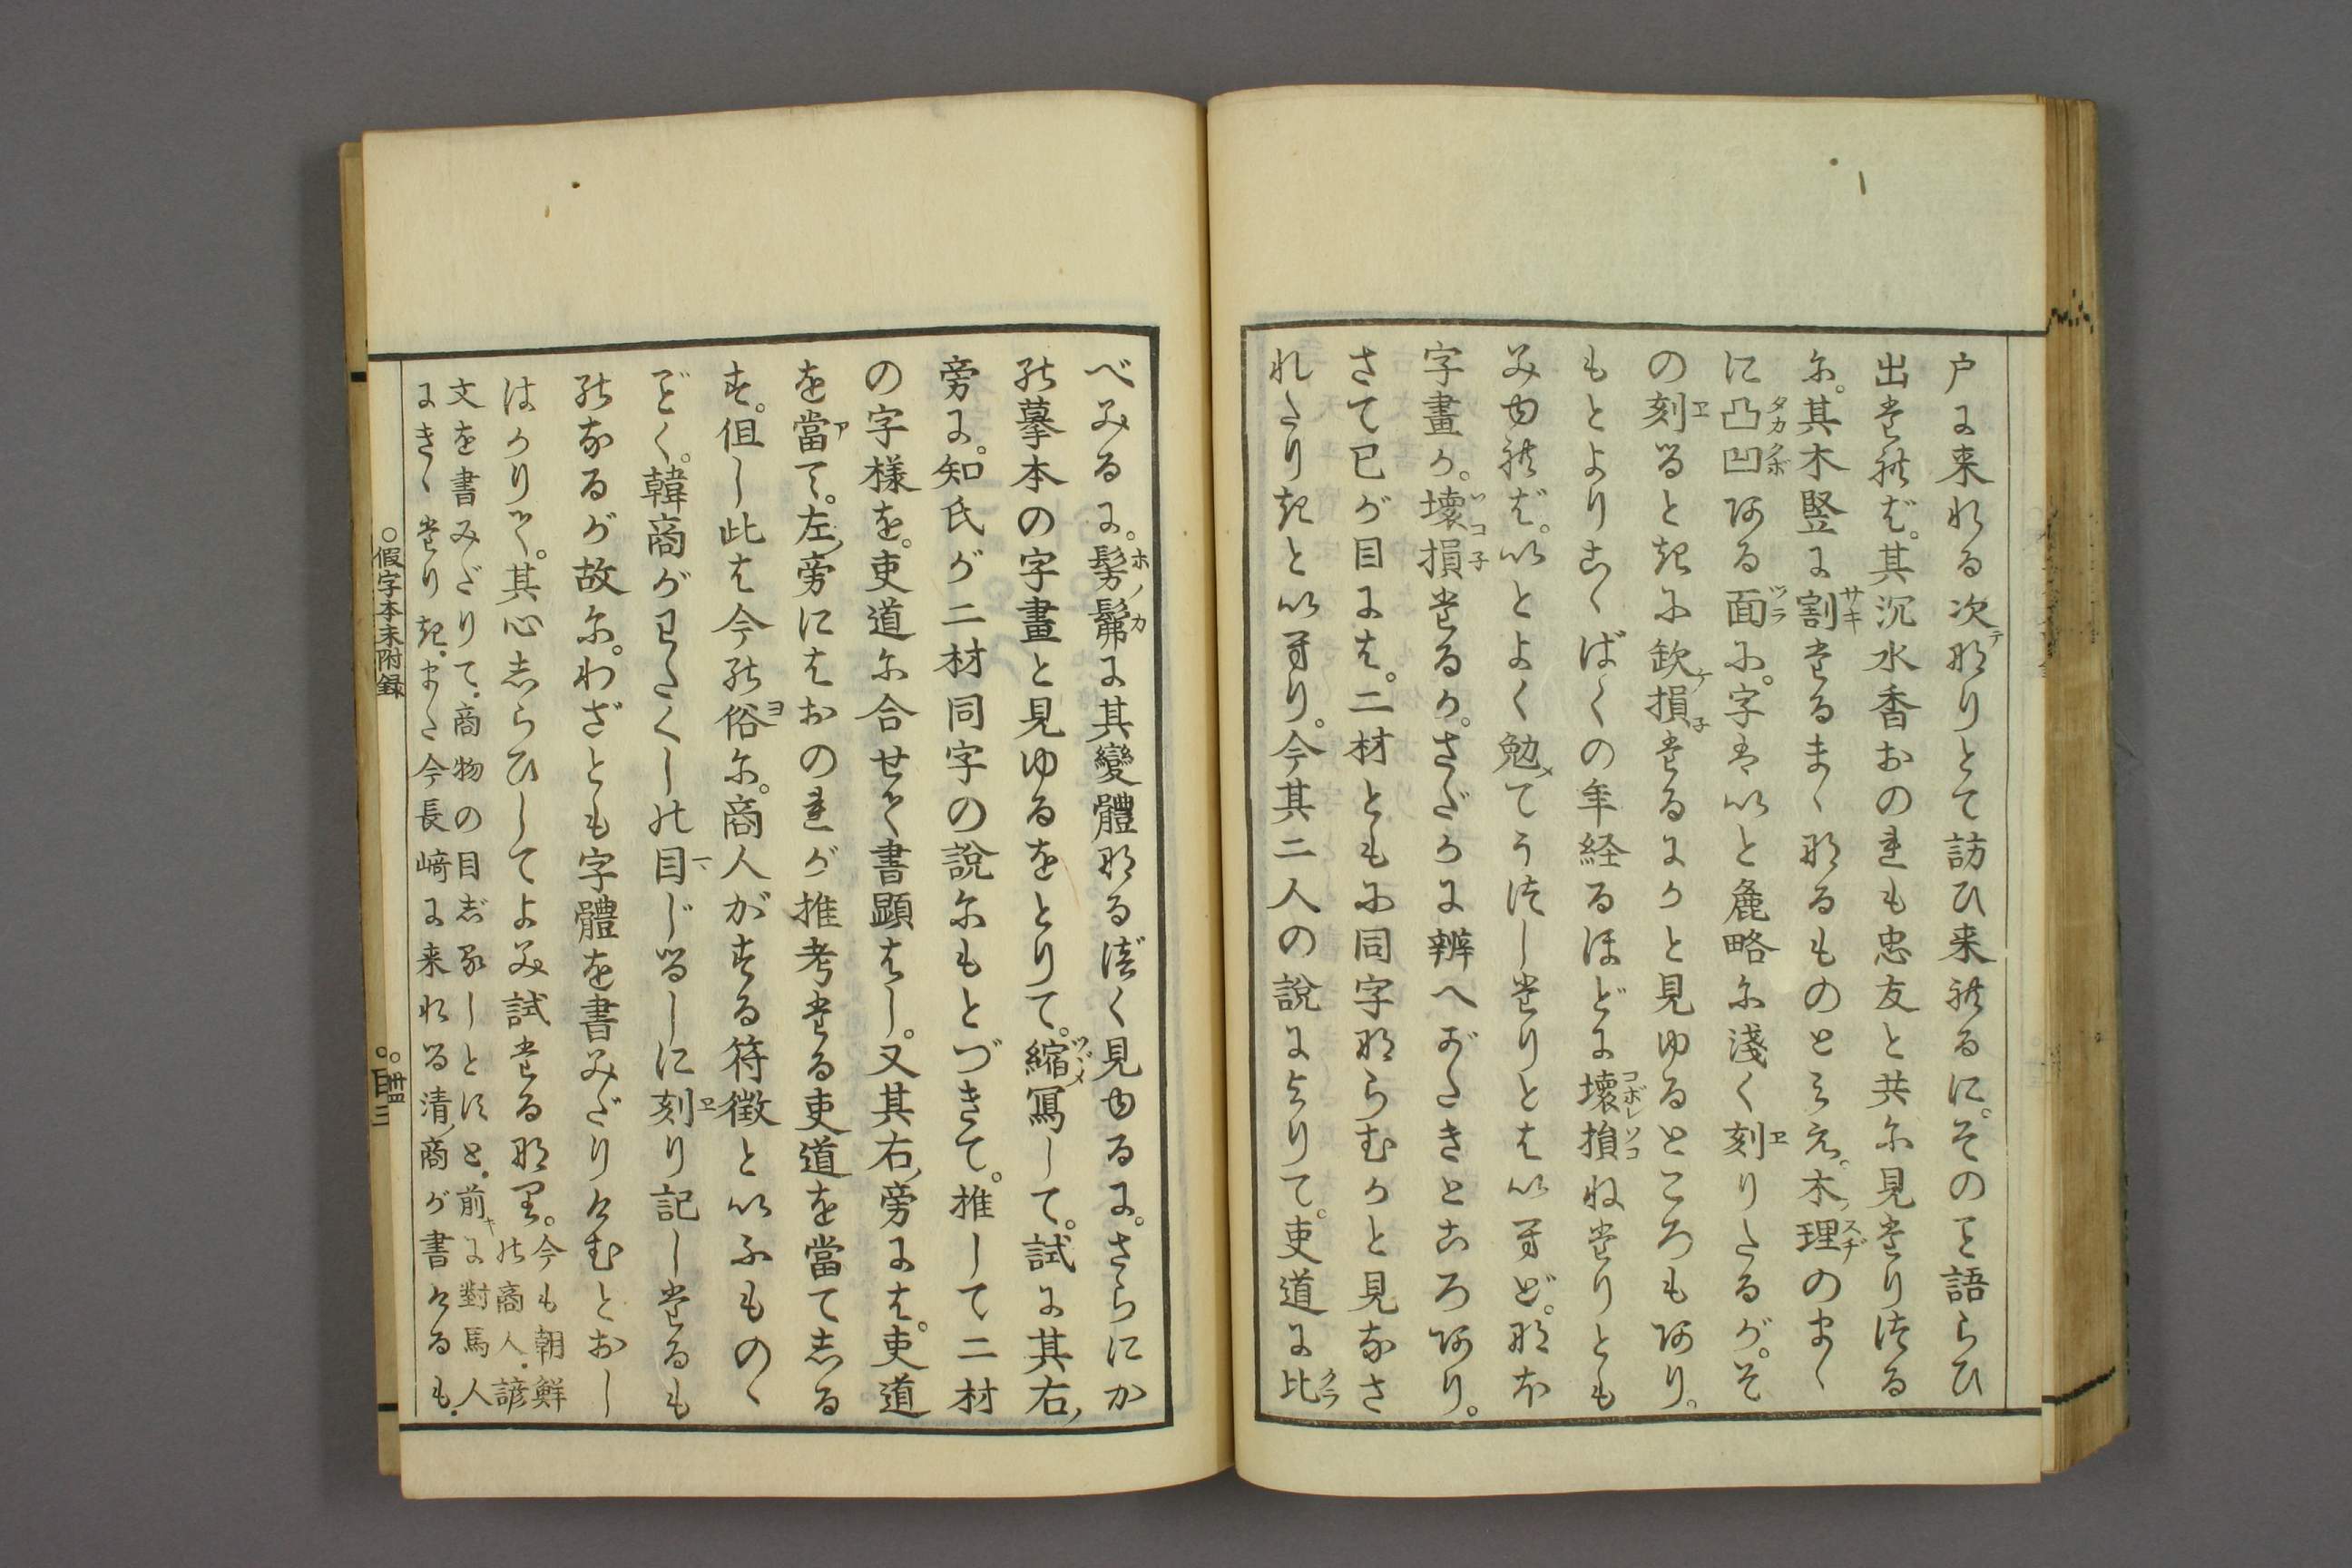 戸に来れる次テなりとて訪ひ来けるに。そのこと語らひ
出たれば。其沉水香おのれも忠友と共に見たりける
に。其木竪に割サキたるまゝなるものとみえ。木ノ理スヂのまゝ
に凸タカ凹クボある面ツラに。字はいと麁略に淺く刻ヱりたるが。そ
の刻ヱるときに缺カケ損子たるにかと見ゆるところもあり。
もとよりこゝばくの年経るほどに壊コボレ損ソコねたりとも
みゆれば。いとよく勉メてうつしたりとはいへど。なほ
字畫か。壊損ソコ子たるか。さだかに辨へがたきところあり。
さて已が目には。二材ともに同字ならむかと見なさ
れたりきといへり。今其二人の説によりて。吏道に比クラ
べみるに。髣髴ホノカに其變體なるべく見ゆるに。さらにか
の摹本の字畫と見ゆるをとりて。縮ツヾメ冩して。試に其右ノ
旁に。知氏が二材同字の説にもとづきて。推して二材
の字様を。吏道に合せて書顕はし。又其右ノ旁には。吏道
を當アて。左ノ旁にはおのれが推考たる吏道を當てしる
す。但し此は今の俗ヨに。商人がする符徴といふものゝ
ごとく。韓商がわたくしの目じるしに刻ヱり記したるも
のなるが故に。わざとも字體を書みだりけむとおし
はかりて。其心しらひしてよみ試たるなり。今も朝鮮
の商人。諺
文を書みだりて。商物の目じるしとすと。前キに對馬人
にきゝたりき。また今長﨑に来れる清ノ商が書けるも。
○假字本末附録